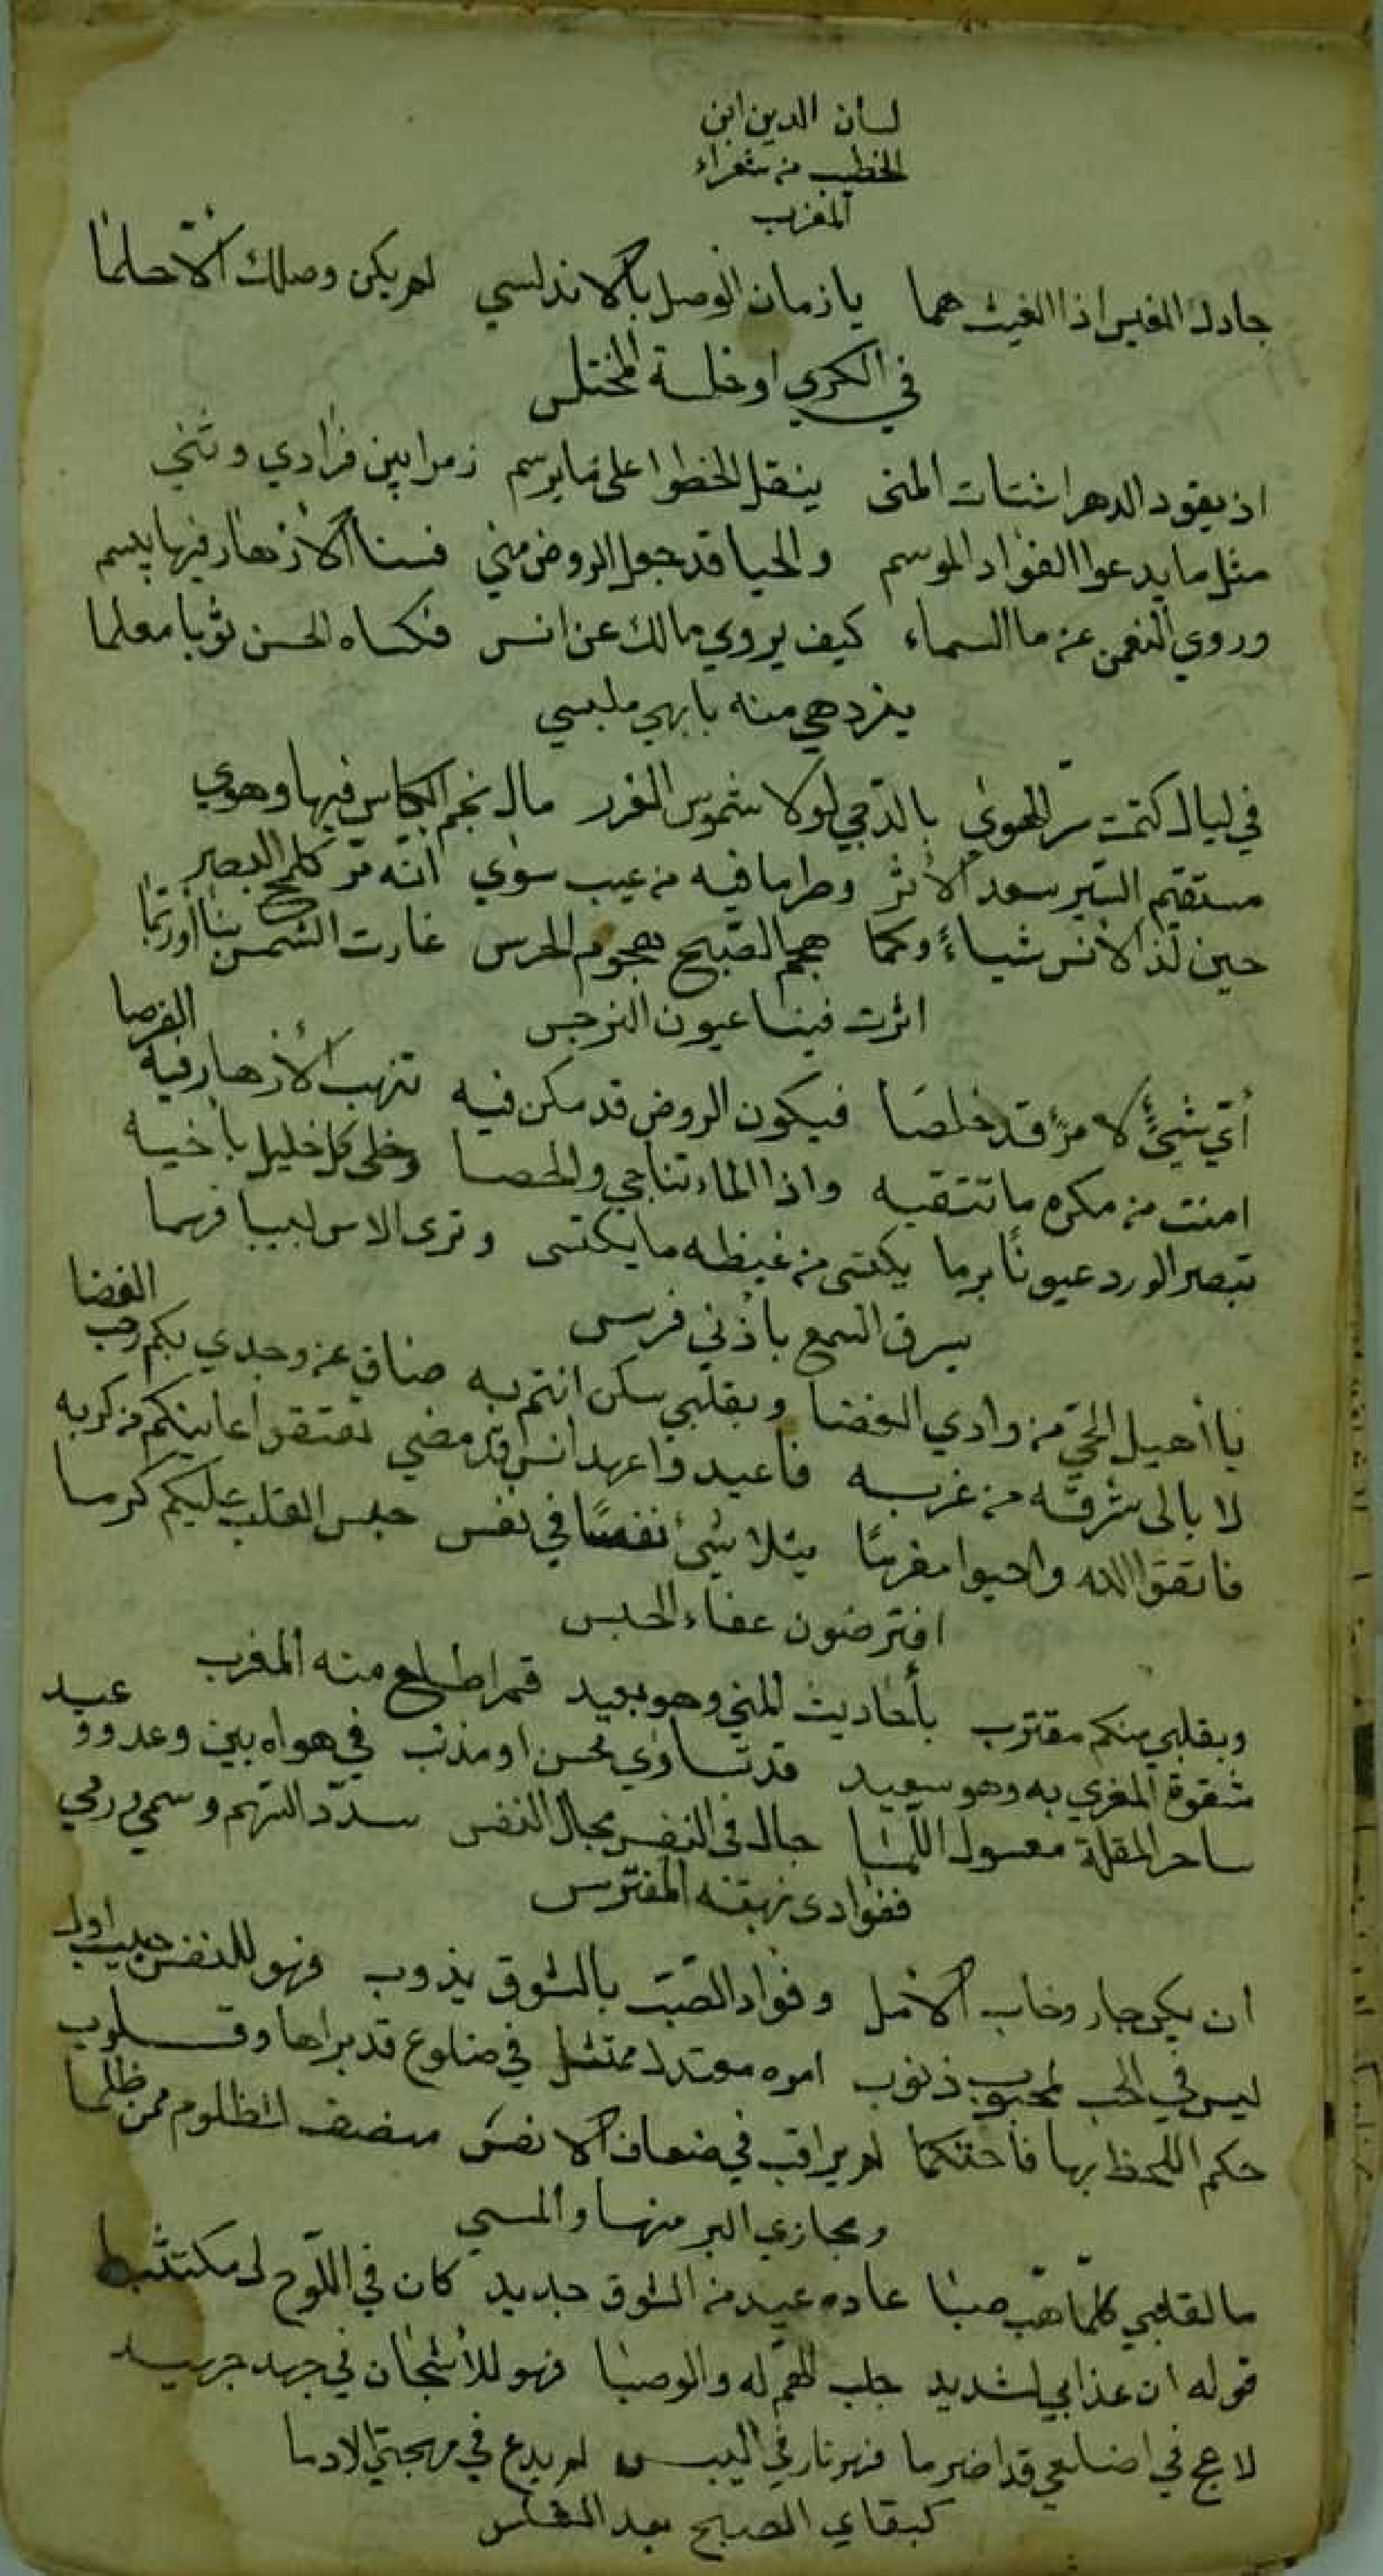 لسان الدين ابن
الخطيب من شعراء
المغرب
جادك الغيس اذا الغيث هما يا زمان الوصل بالاندلسي لم يكن وصلك الا حلما
في الكري او خلسة المختلس
اذ يقود الدهر اشتات المنى ينقل الخطوا على ما يرسم زمرا بين فرادي وثني
مثل ما يدعوا الفواد الموسم والحيا قد جعل الروض مني فسنا الأزهار فيها يبسم
وروي النعمن عن ما السماء كيف يروي مالك عن انس فكساه الحسن ثوبا معلما
يزدهي منه بابهي ملبسي
في ليال كتمت سر الهوي بالدجي لولا شموس الغرر مال نجم الكاس فيها وهوي
مستقيم السير سعد الأثر وطر ما فيه من عيب سوي انه مر كلمح البصر
حين لذ الأنس شياء وكما هجم الصبح هجوم الحرس غارت الشمس بنا او ربما
اثرت فينا عيون النرجس
أي شيئ لامرؤ قد خلصا فيكون الروض قد مكن فيه تنهب الأزهار فيه الفرصا
امنت من مكره ما تتقيه واذا الماء تناجي والحصا وخلى كل خليل بأخيه
تبصر الورد عيونا برما يكتسى من غيظه ما يكتسى وترى الاس لبيبا فهما
يسرق السمع بأذني فرسى
يا أهيل الحي من وادي الغضا وبقلبي سكن انتم به ضاق عن وجدي بكم رحب الغضا
لا بالى شرقه من غربه فاعيدوا عهد انس قد مضي تعتقوا عانيكم من كربه
فاتقوا الله واحيوا مغرما يتلاشئ نفسا في نفس حبس القلب عليكم كرما
افترضون عفاء الحبس
وبقلبي منكم مقترب بأحاديث المني وهو بعيد قمر اطلع منه المغرب
شقوة المغري به وهو سعيد قد تساوي محسن او مذنب في هواه بين وعد ووعيد
ساحر المقلة معسول اللما جال في النفس مجال النفس سدد السهم وسمي ورمي
ففوادى نهبته المفترس
ان يكن جار وخاب الأمل وفواد الصب بالشوق يذوب فهو للنفس حبيب اول
ليس في الحب لمحبوب ذنوب امره معتدل ممتثل في ضلوع قد براها وقلوب
حكم اللحظ بها فاحتكما لم يراقب في ضعاف الانفس منصف المظلوم ممن ظلما
ومجازي البر منها والمسي
ما لقلبي كلما هب صبا عاده عيد من الشوق جديد كان في اللوح له مكتتبا
قوله ان عذابي لشديد جلب الهم له والوصبا فهو للأشجان في جهد جهيد
لاعج في اضلعي قد اضرما فهو نار في اليبس لم يدع في مهجتي الا دما
كبقاي الصبح بعد الغلس